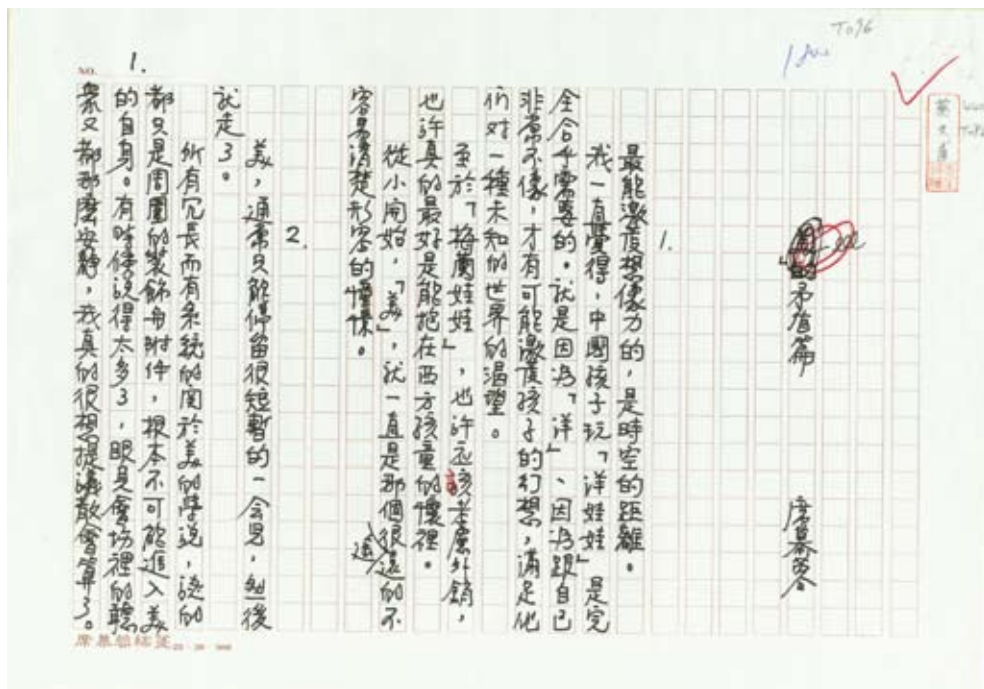 To96
」的矛盾篇
席慕蓉
1.
最能激發想像力的,是時空的距離。
我一直覺得,中國孩子玩「洋娃娃」是完
全合乎需要的。就是因為「洋」、因為跟自己
非常不像,才有可能激發孩子的幻想,滿足他
們对一種未知的世界的渴望。
至於「梅蘭娃娃」,也許应該考慮外銷,
也許真的最好是能抱在西方孩童的懷裡。
從小開始,「美」,就一直是那個很遠的不
容易清楚形容的憧憬。
2.
美,通常只能停留很短暫的一会兒,然後
就走了。
所有冗長而有系統的関於美的學說,談的
都只是周圍的裝飾與附件,根本不可能進入美
的自身。有時候說得太多了,眼見會場裡的聽
眾又都那麼安靜,我真的很想提議散會算了。
NO. 1.
席慕蓉稿箋